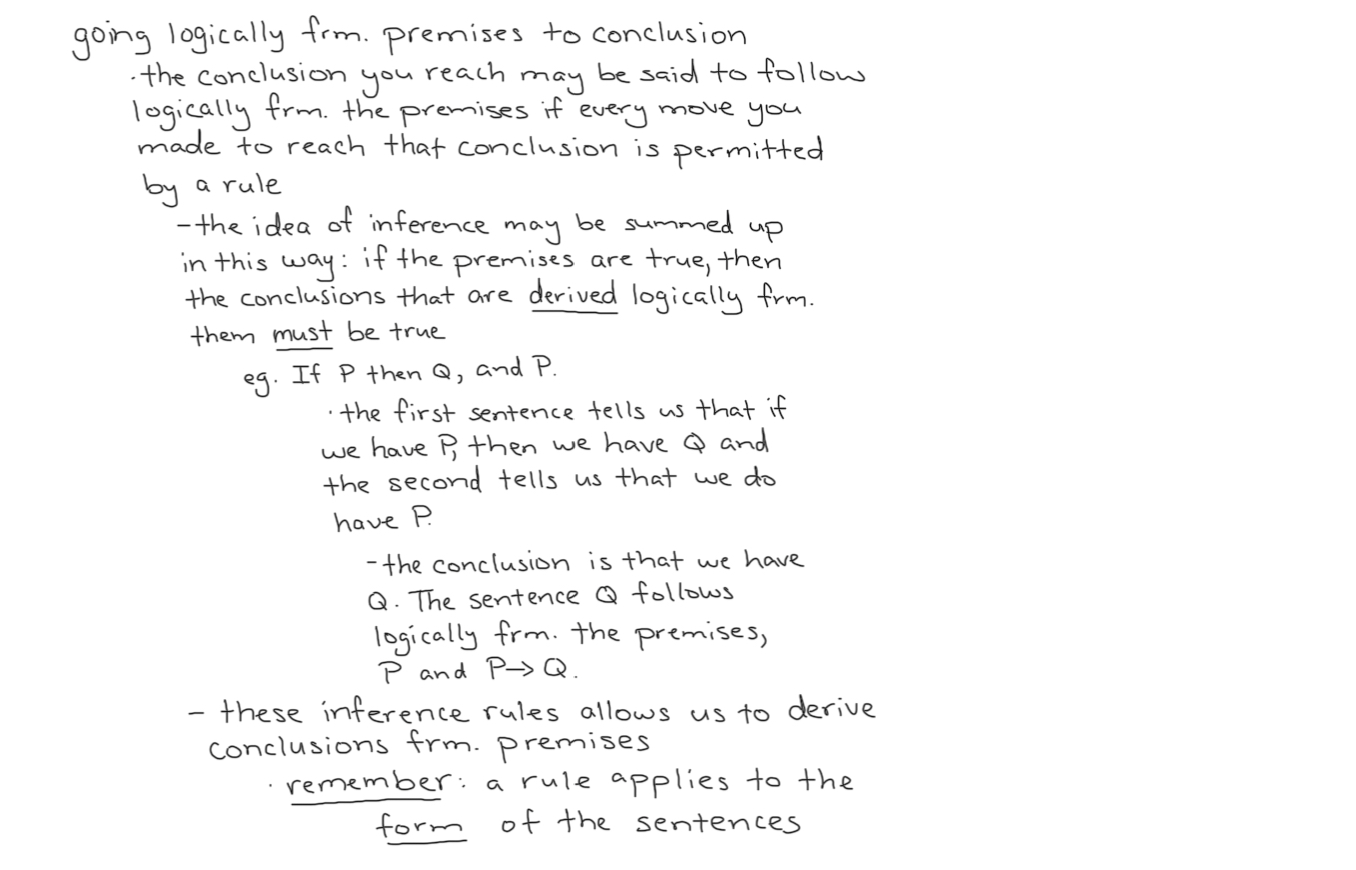 going logically frm. premises to conclusion
·the conclusion you reach may be said to follow
logically frm. the premises if every move you
made to reach that conclusion is permitted
by a rule
-the idea of inference may be summed up
in this way: if the premises are true, then
the conclusions that are derived logically frm.
them must be true
eg. If P then Q, and P.
·the first sentence tells us that if
we have P, then we have Q and
the second tells us that we do
have P.
-the conclusion is that we have
Q. The sentence Q follows
logically frm. the premises,
P and P→Q.
- these inference rules allows us to derive
conclusions frm. premises
· remember: a rule applies to the
form of the sentences